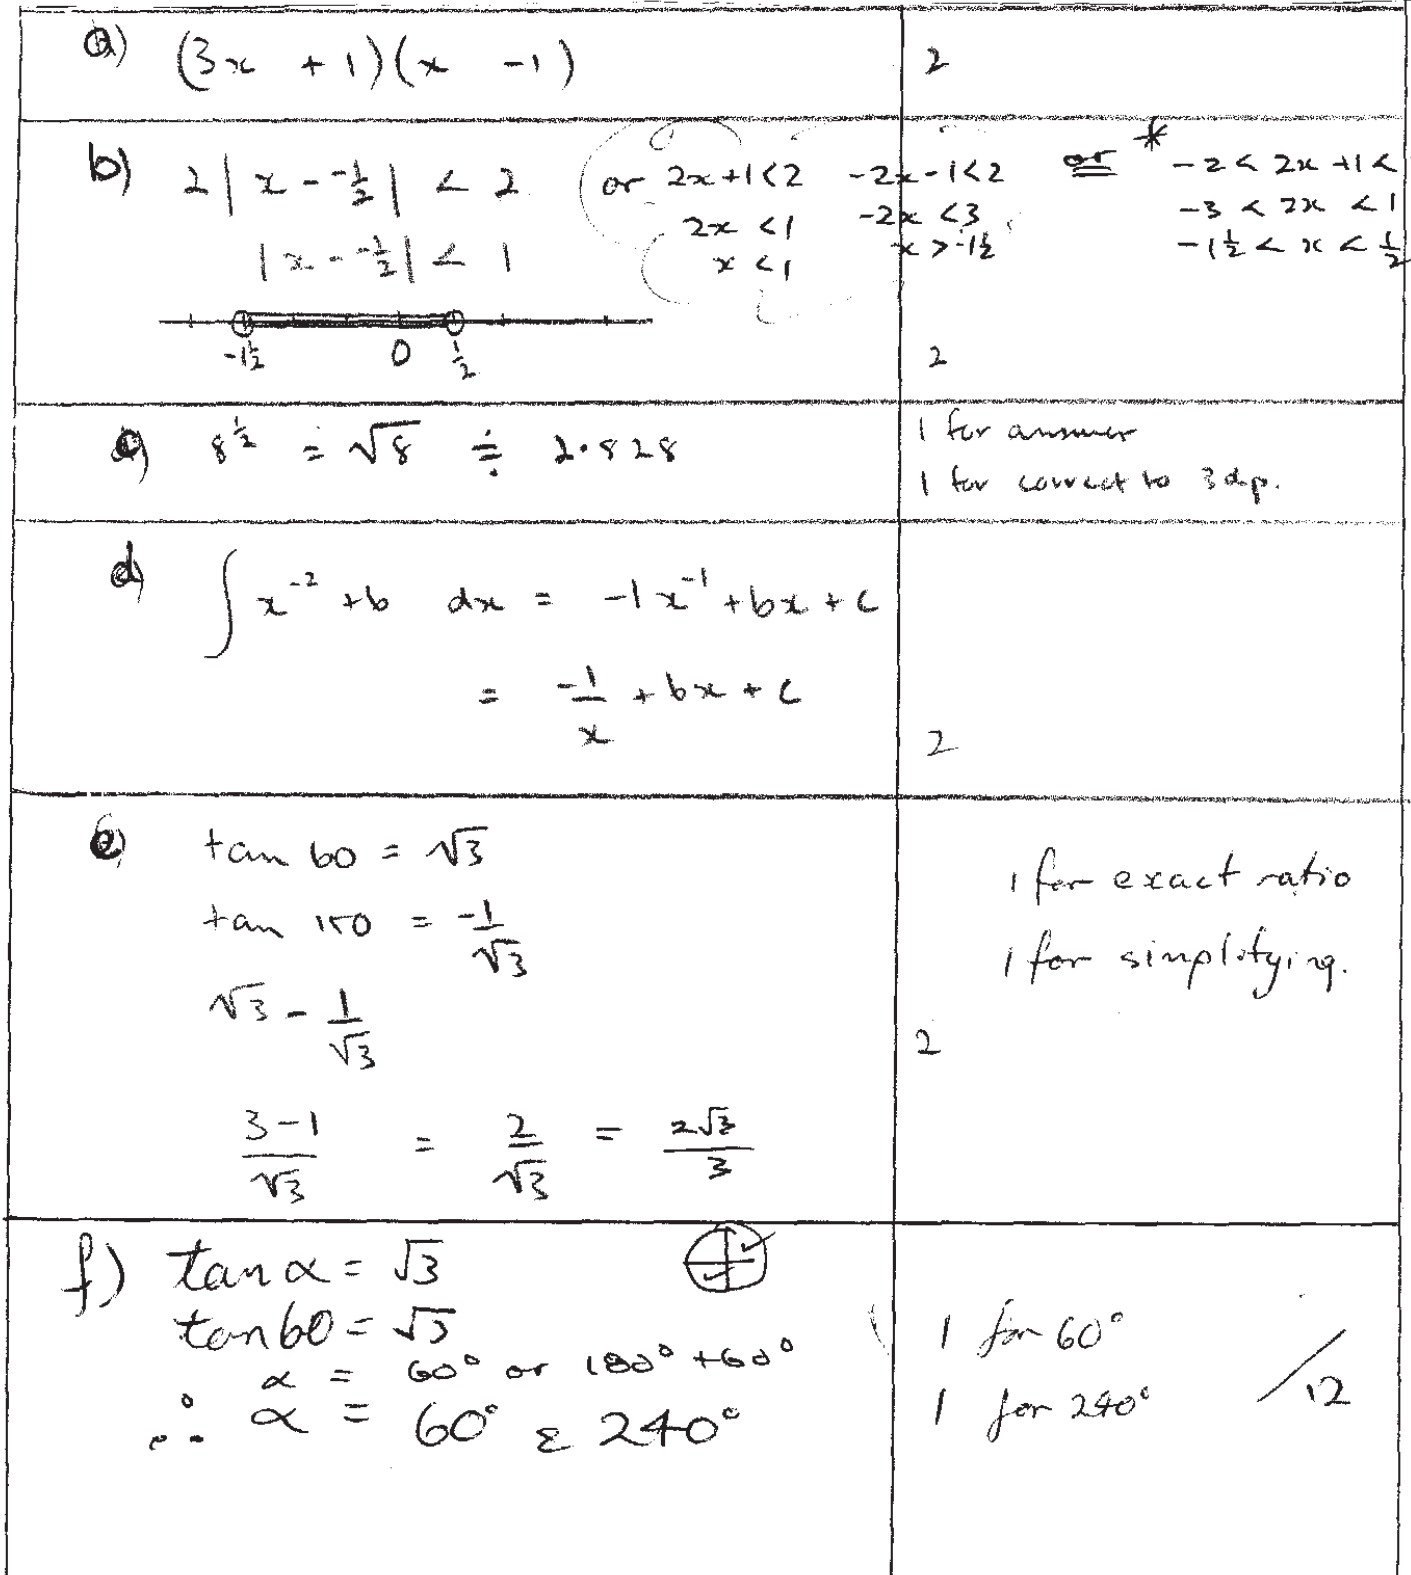 a) (3x + 1)(x - 1)
2
b) 2|x - -½| < 2
|x - -½| < 1
or 2x+1<2 -2x-1<2
2x <1 -2x <3
x <1 x > -1½
or * -2 < 2x +1 <
-3 < 2x < 1
-1½ < x < ½
-1½ 0 ½
2
c) 8^½ = √8 ≑ 2.828
1 for answer
1 for correct to 3 dp.
d) ∫ x^-2 + b dx = -1x^-1 + bx + c
= -1/x + bx + c
2
e) tan 60 = √3
tan 150 = -1/√3
√3 - 1/√3
(3-1)/√3 = 2/√3 = 2√3/3
1 for exact ratio
1 for simplifying.
2
f) tan α = √3
tan 60 = √3
α = 60° or 180° + 60°
∴ α = 60° & 240°
1 for 60°
1 for 240°
/12